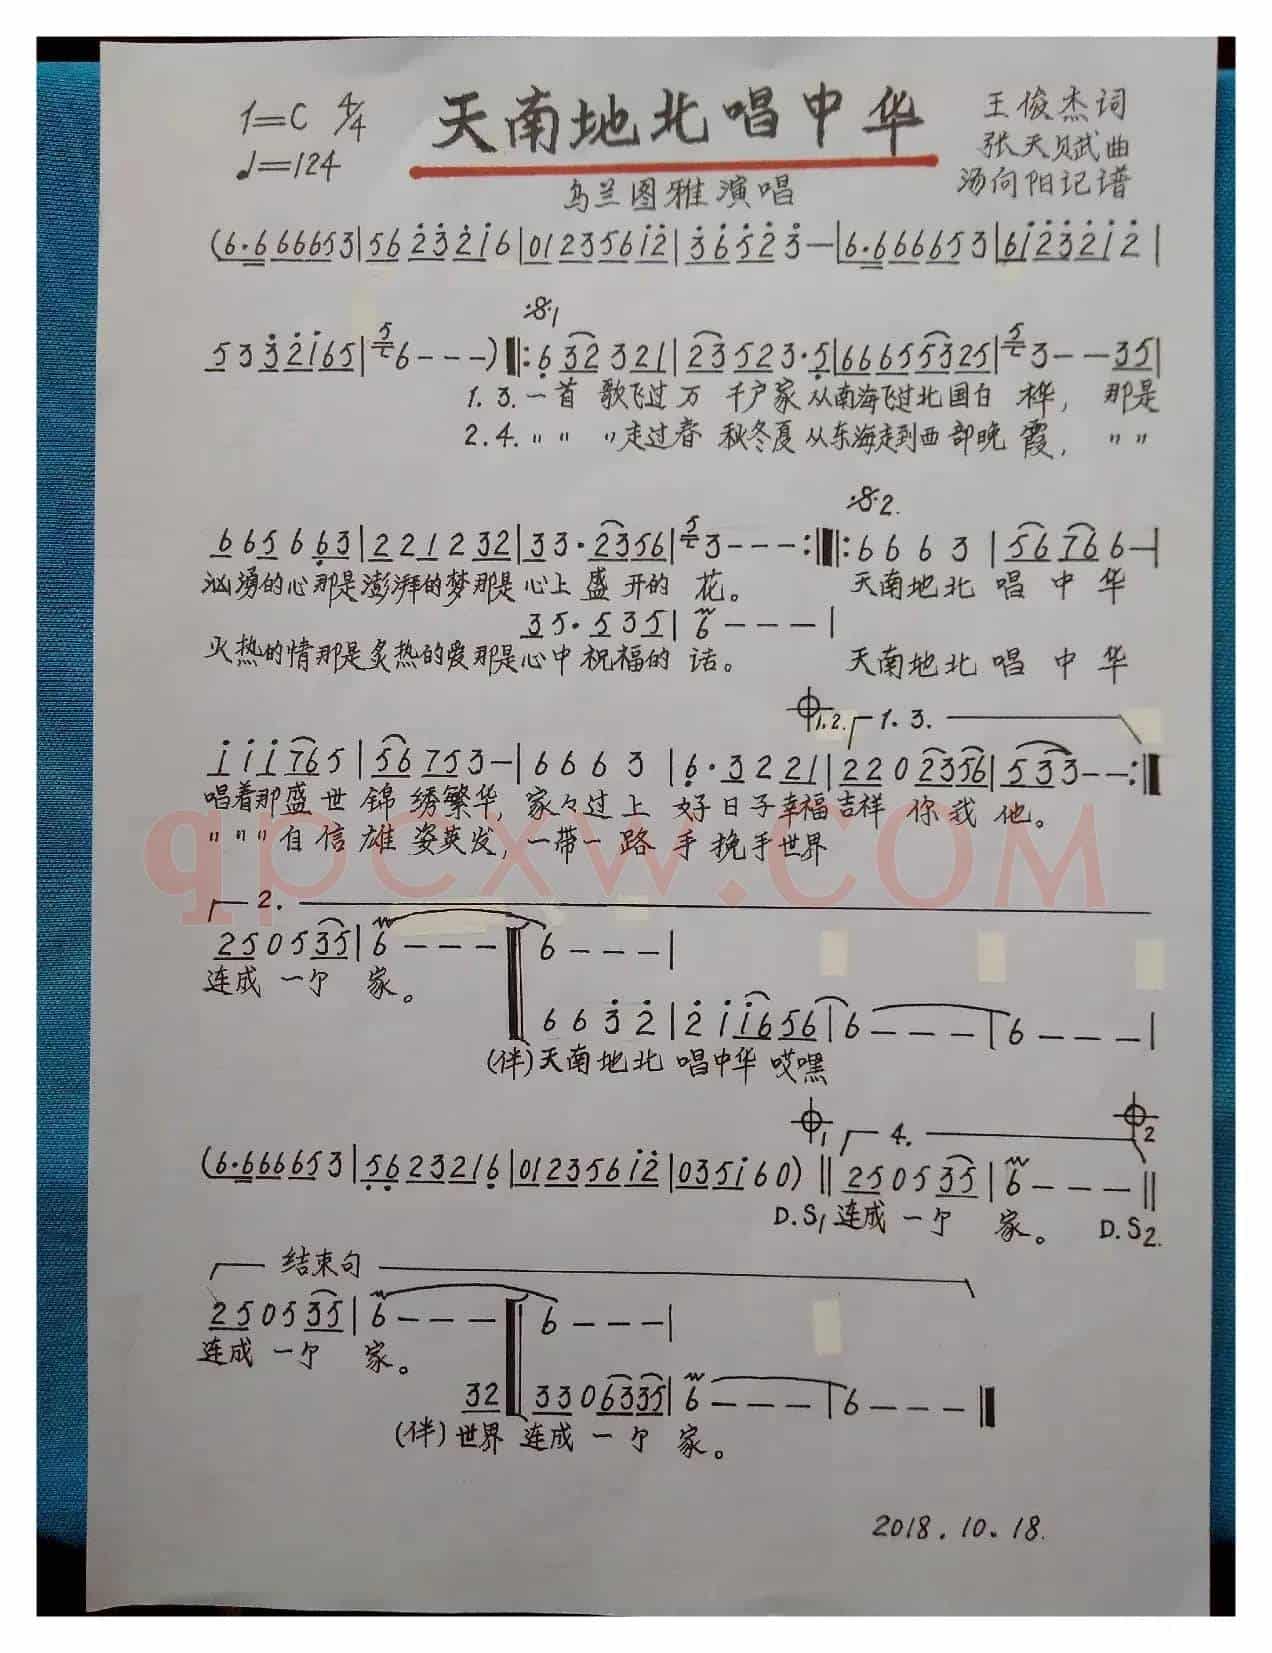 1=C 4/4 天南地北唱中华 王俊杰词
♩=124 张天赋曲
乌兰图雅演唱 汤向阳记谱
(6·6 6 6 6 5 3 | 5 6 2 3 2 1 6 | 0 1 2 3 5 6 1 2 | 3 6 5 2 3 — | 6·6 6 6 6 5 3 | 6 1 2 3 2 1 2 |
𝄋1
5 3 3 2 1 6 5 | 5 6 - - - ) ‖: 6 3 2 3 2 1 | 2 3 5 2 3·5 | 6 6 6 5 5 3 2 5 | 5 3 - - 3 5 |
1. 3. 一首 歌飞过万 千户家 从南海飞过北国白 桦， 那是
2. 4. 〃 〃 〃走过春 秋冬夏 从东海走到西部晚 霞， 〃 〃
𝄋2.
6 6 5 6 6 3 | 2 2 1 2 3 2 | 3 3·2 3 5 6 | 5 3 - - - :‖: 6 6 6 3 | 5 6 7 6 6 - |
汹涌的心那是澎湃的梦那是心上盛开的 花。 天南地北 唱 中 华
3 5·5 3 5 | 6 - - - |
火热的情那是炙热的爱那是心中祝福的 话。 天南地北 唱 中 华
1.2. 1. 3.
1 1 1 7 6 5 | 5 6 7 5 3 - | 6 6 6 3 | 6·3 2 2 1 | 2 2 0 2 3 5 6 | 5 3 3 - - :‖
唱着那盛世 锦 绣繁华， 家々过上 好日子幸福吉祥 你我 他。
〃 〃 〃自信 雄 姿英发， 一带一路 手 挽手世界
qpcxw.com
2.
2 5 0 5 3 5 | 6 - - - ‖ 6 - - - |
连成 一个 家。
6 6 3 2 | 2 1 1 6 5 6 | 6 - - - | 6 - - - |
(伴)天南地北 唱中华 哎嘿
1 4. 2
(6·6 6 6 6 5 3 | 5 6 2 3 2 1 6 | 0 1 2 3 5 6 1 2 | 0 3 5 1 6 0 ) ‖ 2 5 0 5 3 5 | 6 - - - ‖
D.S1 连成 一个 家。 D.S2.
结束句
2 5 0 5 3 5 | 6 - - - ‖ 6 - - - |
连成 一个 家。
3 2 ‖ 3 3 0 6 3 3 5 | 6 - - - | 6 - - - ‖
(伴)世界 连成 一个 家。
2018.10.18.